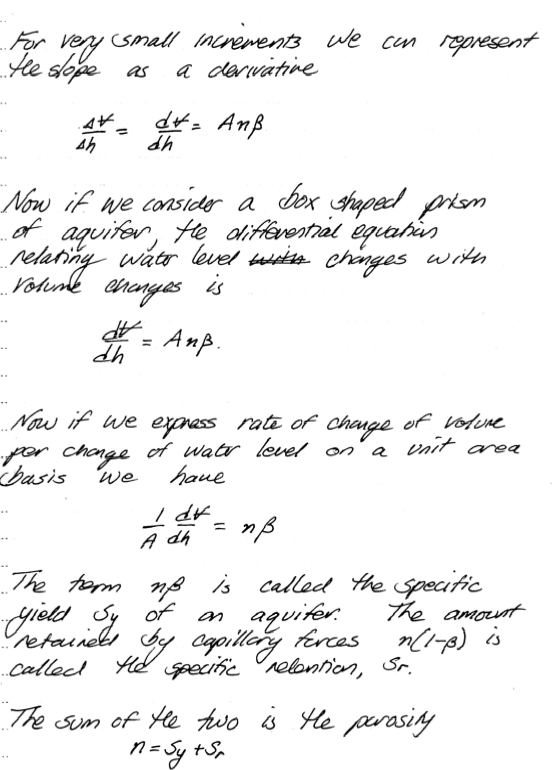 For very small increments we can represent
the slope as a derivative
ΔV/Δh = dV/dh = Anβ
Now if we consider a box shaped prism
of aquifer, the differential equation
relating water level with changes with
volume changes is
dV/dh = Anβ.
Now if we express rate of change of volume
per change of water level on a unit area
basis we have
1/A dV/dh = nβ
The term nβ is called the specific
yield Sy of an aquifer. The amount
retained by capillary forces n(1-β) is
called the specific retention, Sr.
The sum of the two is the porosity
n = Sy + Sr